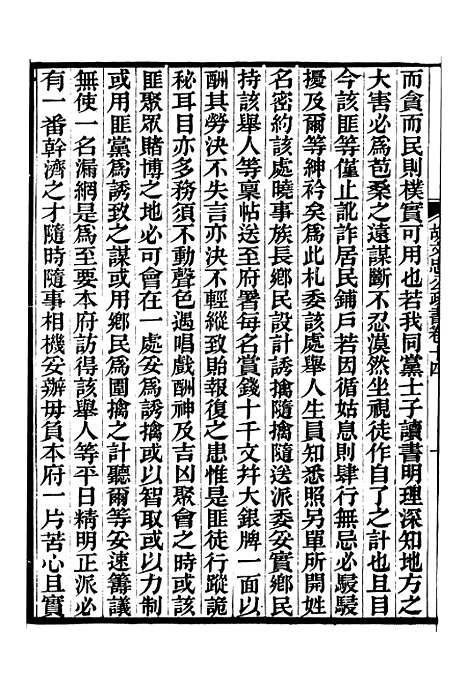 而貪而民則樸實可用也若我同黨士子讀書明理深知地方之
大害必爲苞桑之遠謀斷不忍漠然坐視徒作自了之計也且目
今該匪等僅止訛詐居民鋪戶若因循姑息則肆行無忌必駸駸
擾及爾等紳衿矣爲此札委該處舉人生員知悉照另單所開姓
名密約該處曉事族長鄉民設計誘擒隨擒隨送派委妥實鄉民
持該舉人等稟帖送至府署每名賞錢十千文幷大銀牌一面以
酬其勞決不失言亦決不輕縱致貽報復之患惟是匪徒行蹤詭
秘耳目亦多務須不動聲色遇唱戲酬神及吉凶聚會之時或該
匪聚眾賭博之地必可會在一處妥爲誘擒或以智取或以力制
或用匪黨爲誘致之謀或用鄉民爲圍擒之計聽爾等妥速籌議
無使一名漏網是爲至要本府訪得該舉人等平日精明正派必
有一番幹濟之才隨時隨事相機妥辦毋負本府一片苦心且實
胡文忠公政書卷十四